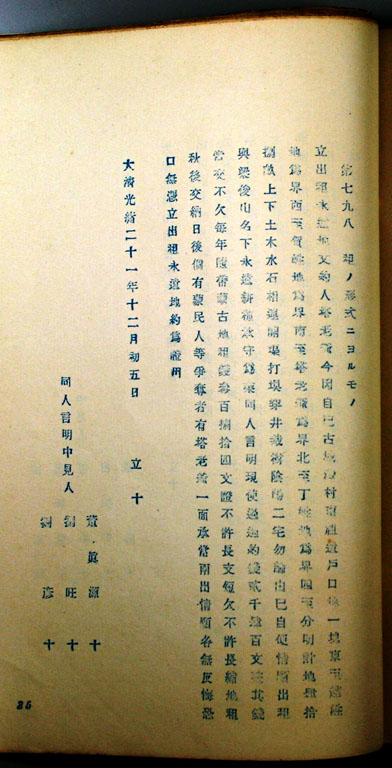 第七九八 租ノ形式ニヨルモノ
立出租永遠地文約人塔老 今因自己古 村 祖遺戶口 一塊東至
地爲界西至賀姓地爲界南至塔老 爲界北至丁姓地爲界四至分明計地 拾
畝上下土木水石相連開渠打 井栽樹陰陽二宅勿論由己自便情願出租
與梁俊山名下永遠耕種承守爲業同人言明現使過 約錢貳千 百文 其錢
當交不欠每年隨帶蒙古地租錢 百捌拾四文證不許長支短欠不許長縮地租
秋後交納日後倘有蒙民人等爭奪者有塔老 一面承當兩出情願各無反悔恐
口無憑立出租永遠地約爲證用
大淸光緒二十一年十二月初五日 立十
同人言明中見人
董眞源十
劉旺十
劉彦十
25